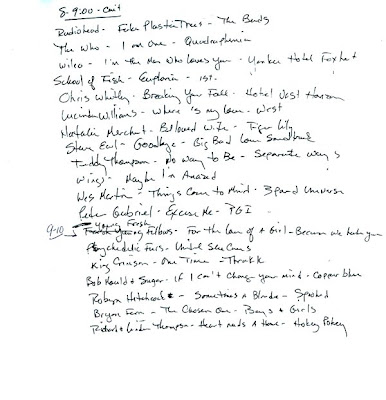 8-9:00 - Con't
Radiohead - Fake Plastic Trees - The Bends
The Who - I am One - Quadrophenia
Wilco - I'm the Man Who Loves you - Yankee Hotel Foxtrot
School of Fish - Euphoria - 1st.
Chris Whitley - Breaking Your Fall - Hotel Vast Horizon
Lucinda Williams - Where is my love - West
Natalie Merchant - Beloved Wife - Tiger Lily
Steve Earl - Goodbye - Big Bad Love Soundtrack
Teddy Thompson - No way to Be - Separate ways
Wings - Maybe I'm Amazed
Wes Martin - Things Come to Mind - Universe
Peter Gabriel - Excuse Me - PG I
Young Fresh
9-10 Fellows - For the Love of a Girl - Because we hate you
Psychedelic Furs - Until She Comes
King Crimson - One Time - Thrakk
Bob Mould & Sugar - If I can't Change your mind - Copper blue
Robyn Hitchcock - Sometimes a Blonde - Spooked
Bryan Ferry - The Chosen One - Boys & Girls
Richard & Linda Thompson - Heart needs a Home - Hokey Pokey